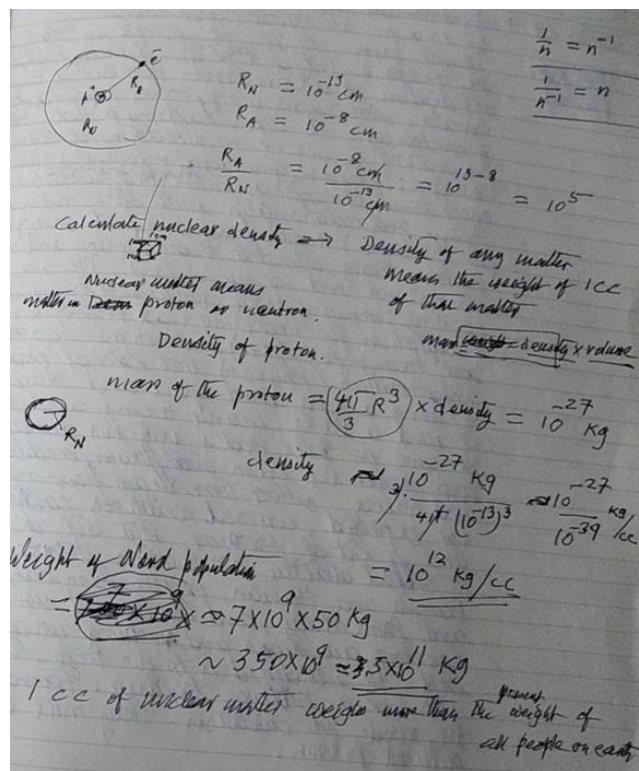 1/n = n⁻¹
1/n⁻¹ = n
ē
R_A
P⁺
R_N
R_N = 10⁻¹³ cm
R_A = 10⁻⁸ cm
R_A/R_N = 10⁻⁸ cm / 10⁻¹³ cm = 10¹³⁻⁸ = 10⁵
Calculate nuclear density ⇒ Density of any matter
means the weight of 1 CC
of that matter
Nuclear matter means
matter in proton or neutron.
mass = density × volume
Density of proton.
mass of the proton = (4π/3 R³) × density = 10⁻²⁷ Kg
R_N
density ≈ 3 · 10⁻²⁷ Kg / 4π (10⁻¹³)³ ≈ 10⁻²⁷ / 10⁻³⁹ kg/cc
= 10¹² Kg/cc
Weight of Word population
= ≈ 7×10⁹ × 50 Kg
~ 350×10⁹ ≈ 3.5×10¹¹ Kg
1 cc of nuclear matter weighs more than the present weight of
all people on earth